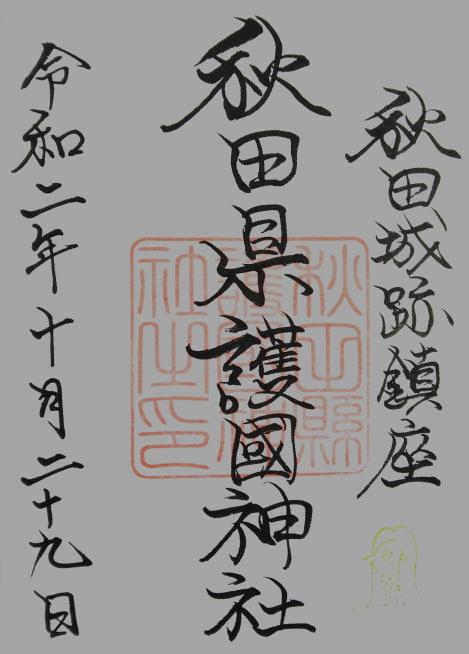 秋田城跡鎮座
秋田県護國神社
秋田縣護國神社之印
令和二年十月二十九日